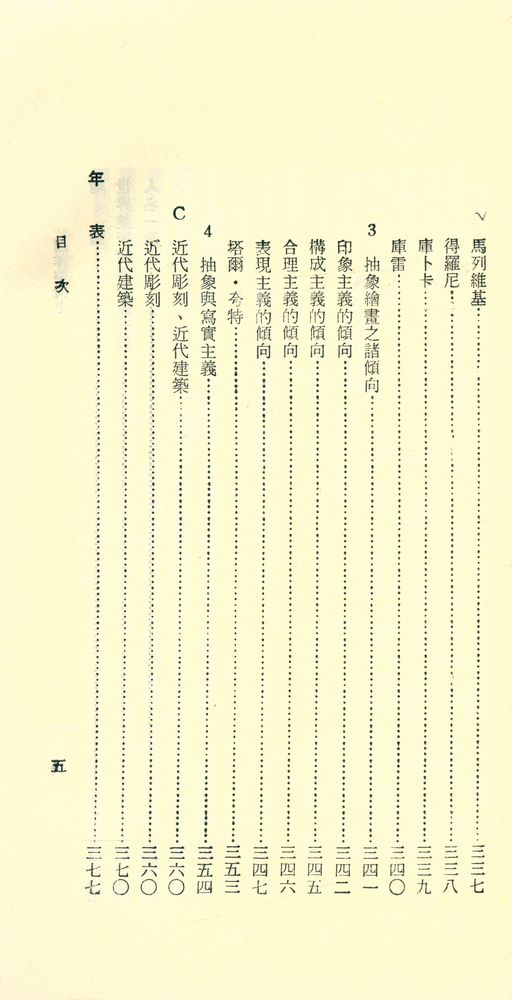 馬列維基……三三七
得羅尼……三三八
庫卜卡……三三九
庫雷……三四〇
3 抽象繪畫之諸傾向……三四一
印象主義的傾向……三四二
構成主義的傾向……三四五
合理主義的傾向……三四六
表現主義的傾向……三四七
塔爾・夸特……三五三
4 抽象與寫實主義……三五四
C 近代彫刻、近代建築……三六〇
近代彫刻……三六〇
近代建築……三七〇
年表……三七七
目次
五